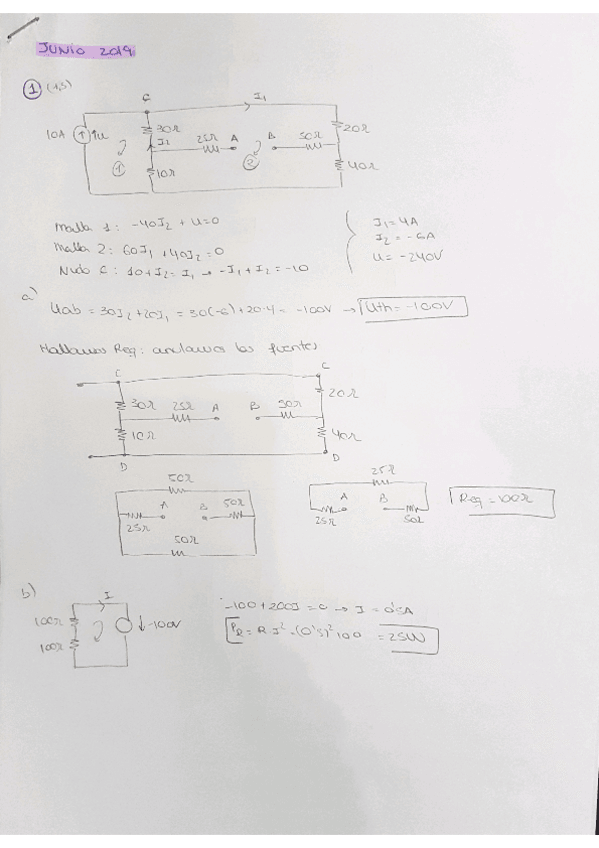 JUNIO 2019
1 (1'5)
C I₁
10A u 30Ω 25Ω A B 50Ω 20Ω
I₂
1 2
10Ω 40Ω
Malla 1: -40I₂ + U=0
Malla 2: 60I₁ + 40I₂ = 0
Nudo C: 10+I₂ = I₁ → -I₁ + I₂ = -10
I₁ = 4A
I₂ = -6A
U = -240V
a)
Uab = 30I₂+20I₁ = 30(-6)+20·4 = -100V → Uth = -100V
Hallamos Req: anulamos las fuentes
C C
30Ω 25Ω A B 50Ω 20Ω
10Ω 40Ω
D D
50Ω
A B 50Ω
25Ω
50Ω
25Ω
A B
25Ω 50Ω
Req = 100Ω
b)
I
100Ω -100V
100Ω
-100+200I = 0 → I = 0'5A
PR = R·I² = (0'5)²100 = 25W